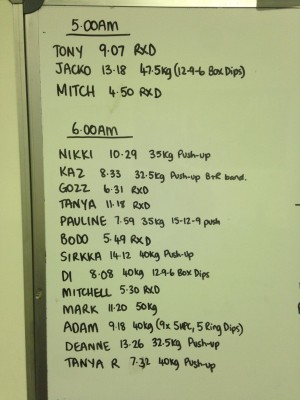 5.00AM
TONY 9.07 RXD
JACKO 13.18 47.5kg (12-9-6 Box Dips)
MITCH 4.50 RXD
6.00AM
NIKKI 10.29 35kg Push-up
KAZ 8.33 32.5kg Push-up B+R band.
GOZZ 6.31 RXD
TANYA 11.15 RXD
PAULINE 7.59 35kg 15-12-9 push
BODO 5.49 RXD
SIRKKA 14.12 40kg Push-up
DI 8.08 40kg 12-9-6 Box Dips
MITCHELL 5.30 RXD
MARK 11.20 50kg
ADAM 9.18 40kg (9x 5, 5 Ring Dips)
DEANNE 13.26 32.5kg Push-up
TANYA R 7.32 40kg Push-up